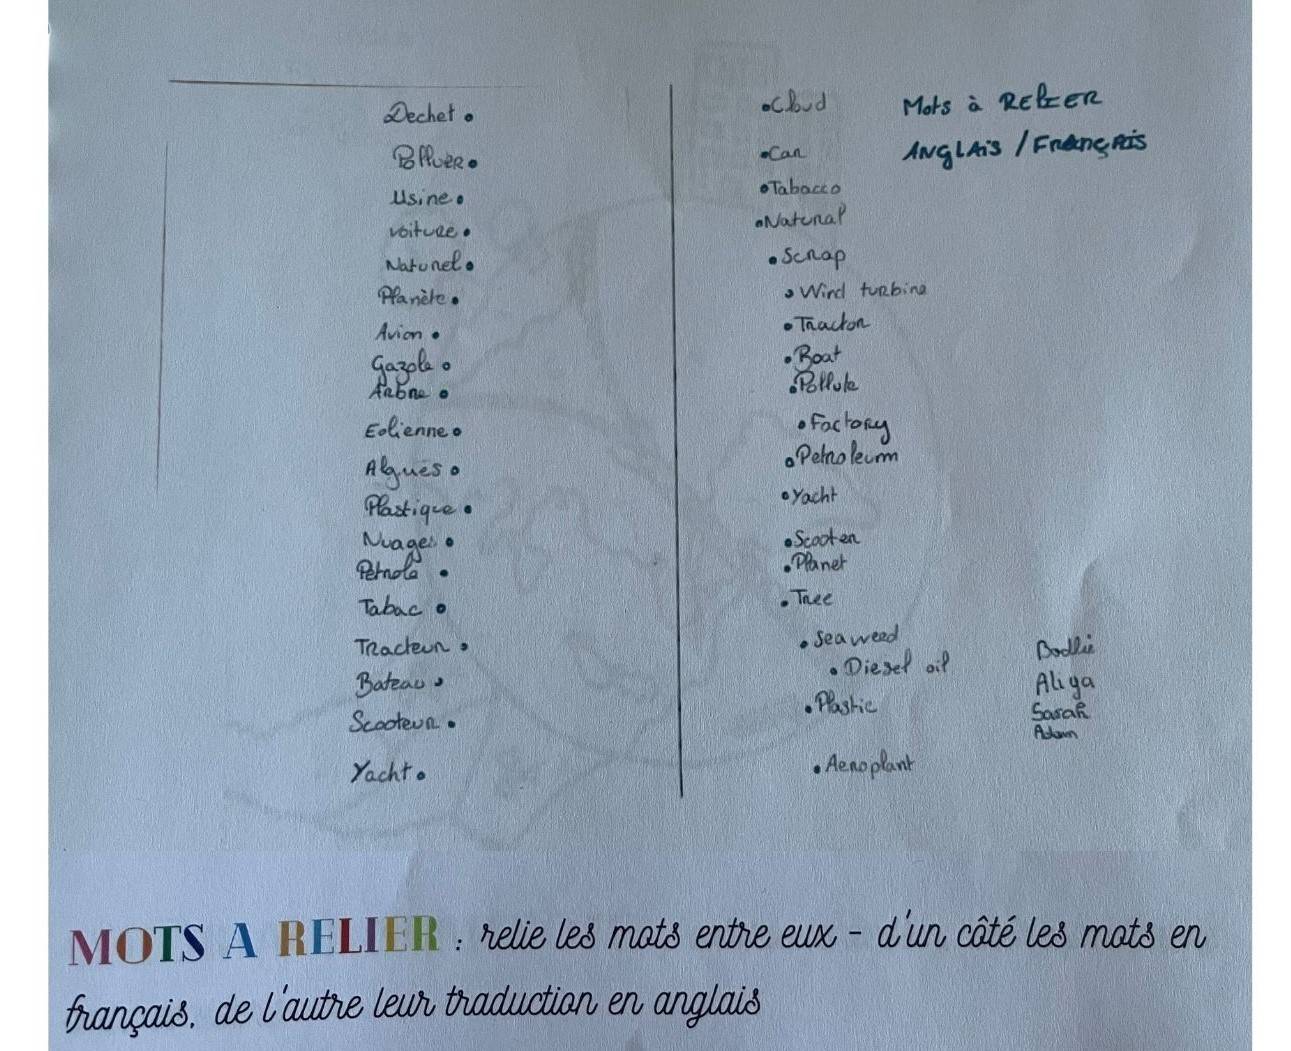 Dechet •
Polluer •
Usine •
voiture •
Naturel •
Planète •
Avion •
Gazole •
Arbre •
Eolienne •
Algues •
Plastique •
Nuages •
Petrole •
Tabac •
Tracteur •
Bateau •
Scooteur •
Yacht •
• Cloud
• Car
• Tabacco
• Natural
• Scrap
• Wind turbine
• Tractor
• Boat
• Pollute
• Factory
• Petroleum
• Yacht
• Scooter
• Planet
• Tree
• Seaweed
• Diesel oil
• Plastic
• Aeroplant
Mots à RELIER
ANGLAIS / FRANÇAIS
Aliya
Sarah
Adam
MOTS A RELIER : relie les mots entre eux - d'un côté les mots en
français, de l'autre leur traduction en anglais